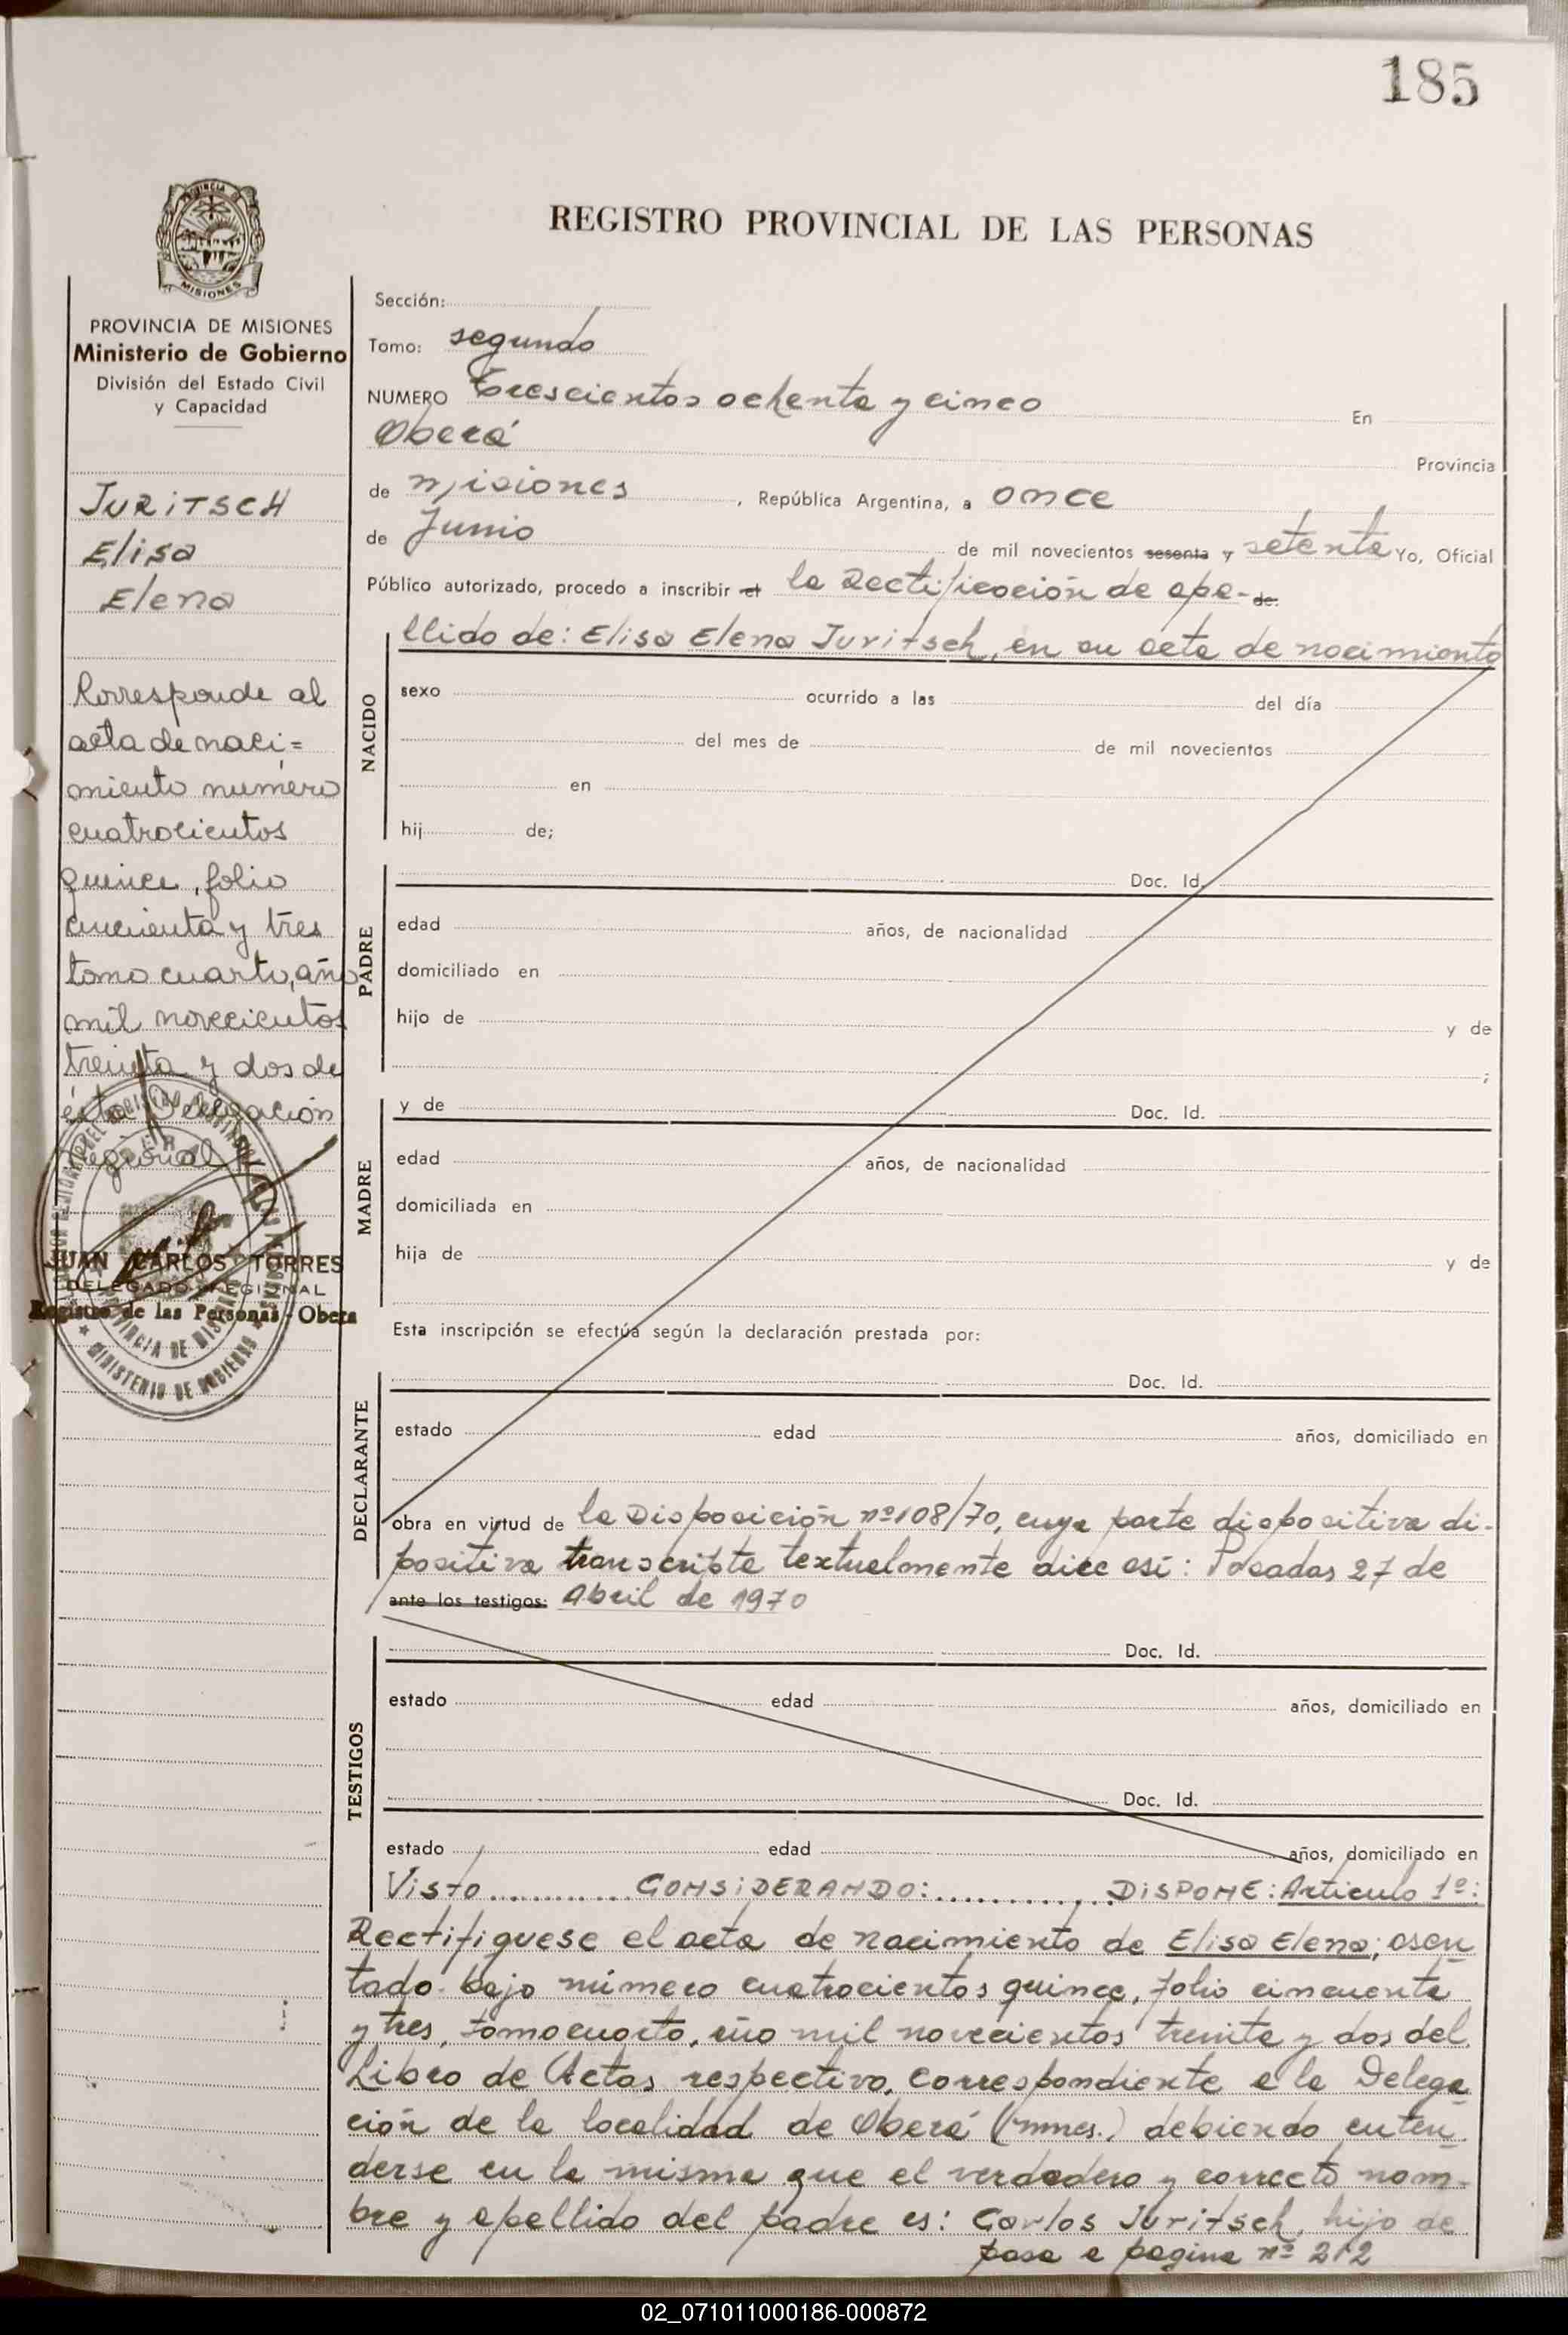 185
PROVINCIA DE
MISIONES
REGISTRO PROVINCIAL DE LAS PERSONAS
PROVINCIA DE MISIONES
Ministerio de Gobierno
División del Estado Civil
y Capacidad
JURITSCH
Elisa
Elena
Corresponde al
acta de naci=
miento numero
cuatrocientos
quince, folio
cincuenta y tres
tomo cuarto, año
mil novecientos
treinta y dos de
ésta Delegación
Regional
JUAN CARLOS TORRES
DELEGADO REGIONAL
Registro de las Personas - Obera
PROVINCIA DE MISIONES
MINISTERIO DE GOBIERNO
Sección:
Tomo: segundo
NUMERO Trescientos ochenta y cinco En
Oberá Provincia
de misiones, República Argentina, a once
de Junio de mil novecientos sesenta y setenta Yo, Oficial
Público autorizado, procedo a inscribir el la Rectificación de ape- de:
llido de: Elisa Elena Juritsch, en su acta de nacimiento
NACIDO
sexo ocurrido a las del día
del mes de de mil novecientos
en
hij de;
PADRE
Doc. Id.
edad años, de nacionalidad
domiciliado en
hijo de y de
;
MADRE
y de Doc. Id.
edad años, de nacionalidad
domiciliada en
hija de y de
Esta inscripción se efectúa según la declaración prestada por:
DECLARANTE
Doc. Id.
estado edad años, domiciliado en
obra en virtud de la Disposición nº 108/70, cuya parte dispositiva di-
positiva transcripta textualmente dice así: Posadas 27 de
ante los testigos: Abril de 1970
TESTIGOS
Doc. Id.
estado edad años, domiciliado en
Doc. Id.
estado edad años, domiciliado en
Visto............CONSIDERANDO:............DISPONE: Articulo 1º:
Rectifiquese el acta de nacimiento de Elisa Elena; asen
tado bajo número cuatrocientos quince, folio cincuenta
y tres, tomo cuarto, año mil novecientos treinta y dos del
Libro de Actas respectivo, correspondiente a la Delega
ción de la localidad de Oberá (mnes.) debiendo enten
derse en la misma que el verdadero y correcto nom-
bre y apellido del padre es: Carlos Juritsch, hijo de
pasa a pagina nº 212
02_071011000186-000872